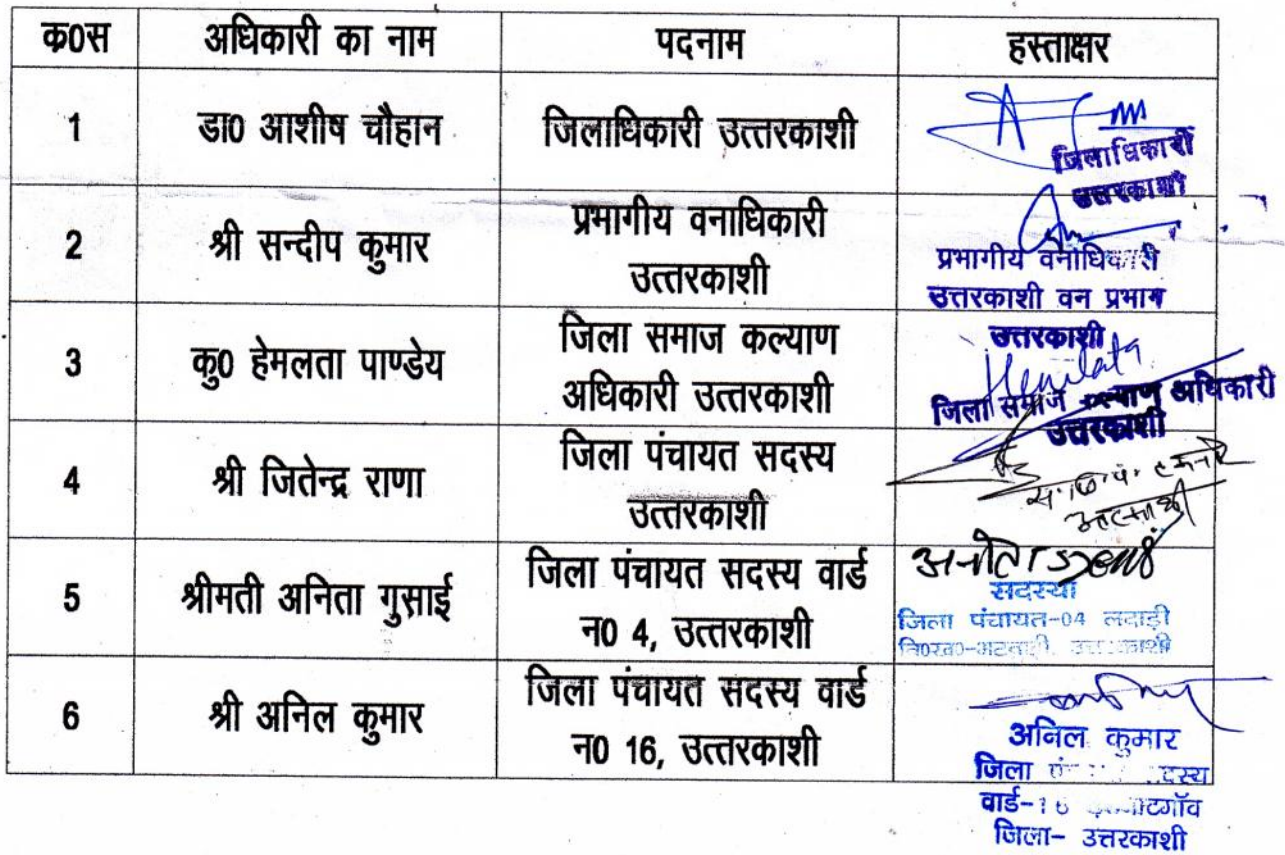 क0स अधिकारी का नाम पदनाम हस्ताक्षर
1 डा0 आशीष चौहान जिलाधिकारी उत्तरकाशी
जिलाधिकारी
उत्तरकाशी
2 श्री सन्दीप कुमार प्रभागीय वनाधिकारी
उत्तरकाशी
प्रभागीय वनाधिकारी
उत्तरकाशी वन प्रभाग
उत्तरकाशी
3 कु0 हेमलता पाण्डेय जिला समाज कल्याण
अधिकारी उत्तरकाशी
Hemlata
जिला समाज कल्याण अधिकारी
उत्तरकाशी
4 श्री जितेन्द्र राणा जिला पंचायत सदस्य
उत्तरकाशी
5 श्रीमती अनिता गुसाई जिला पंचायत सदस्य वार्ड
न0 4, उत्तरकाशी
सदस्या
जिला पंचायत-04 लदाड़ी
उत्तरकाशी
6 श्री अनिल कुमार जिला पंचायत सदस्य वार्ड
न0 16, उत्तरकाशी
अनिल कुमार
जिला सदस्य
वार्ड-16
जिला- उत्तरकाशी